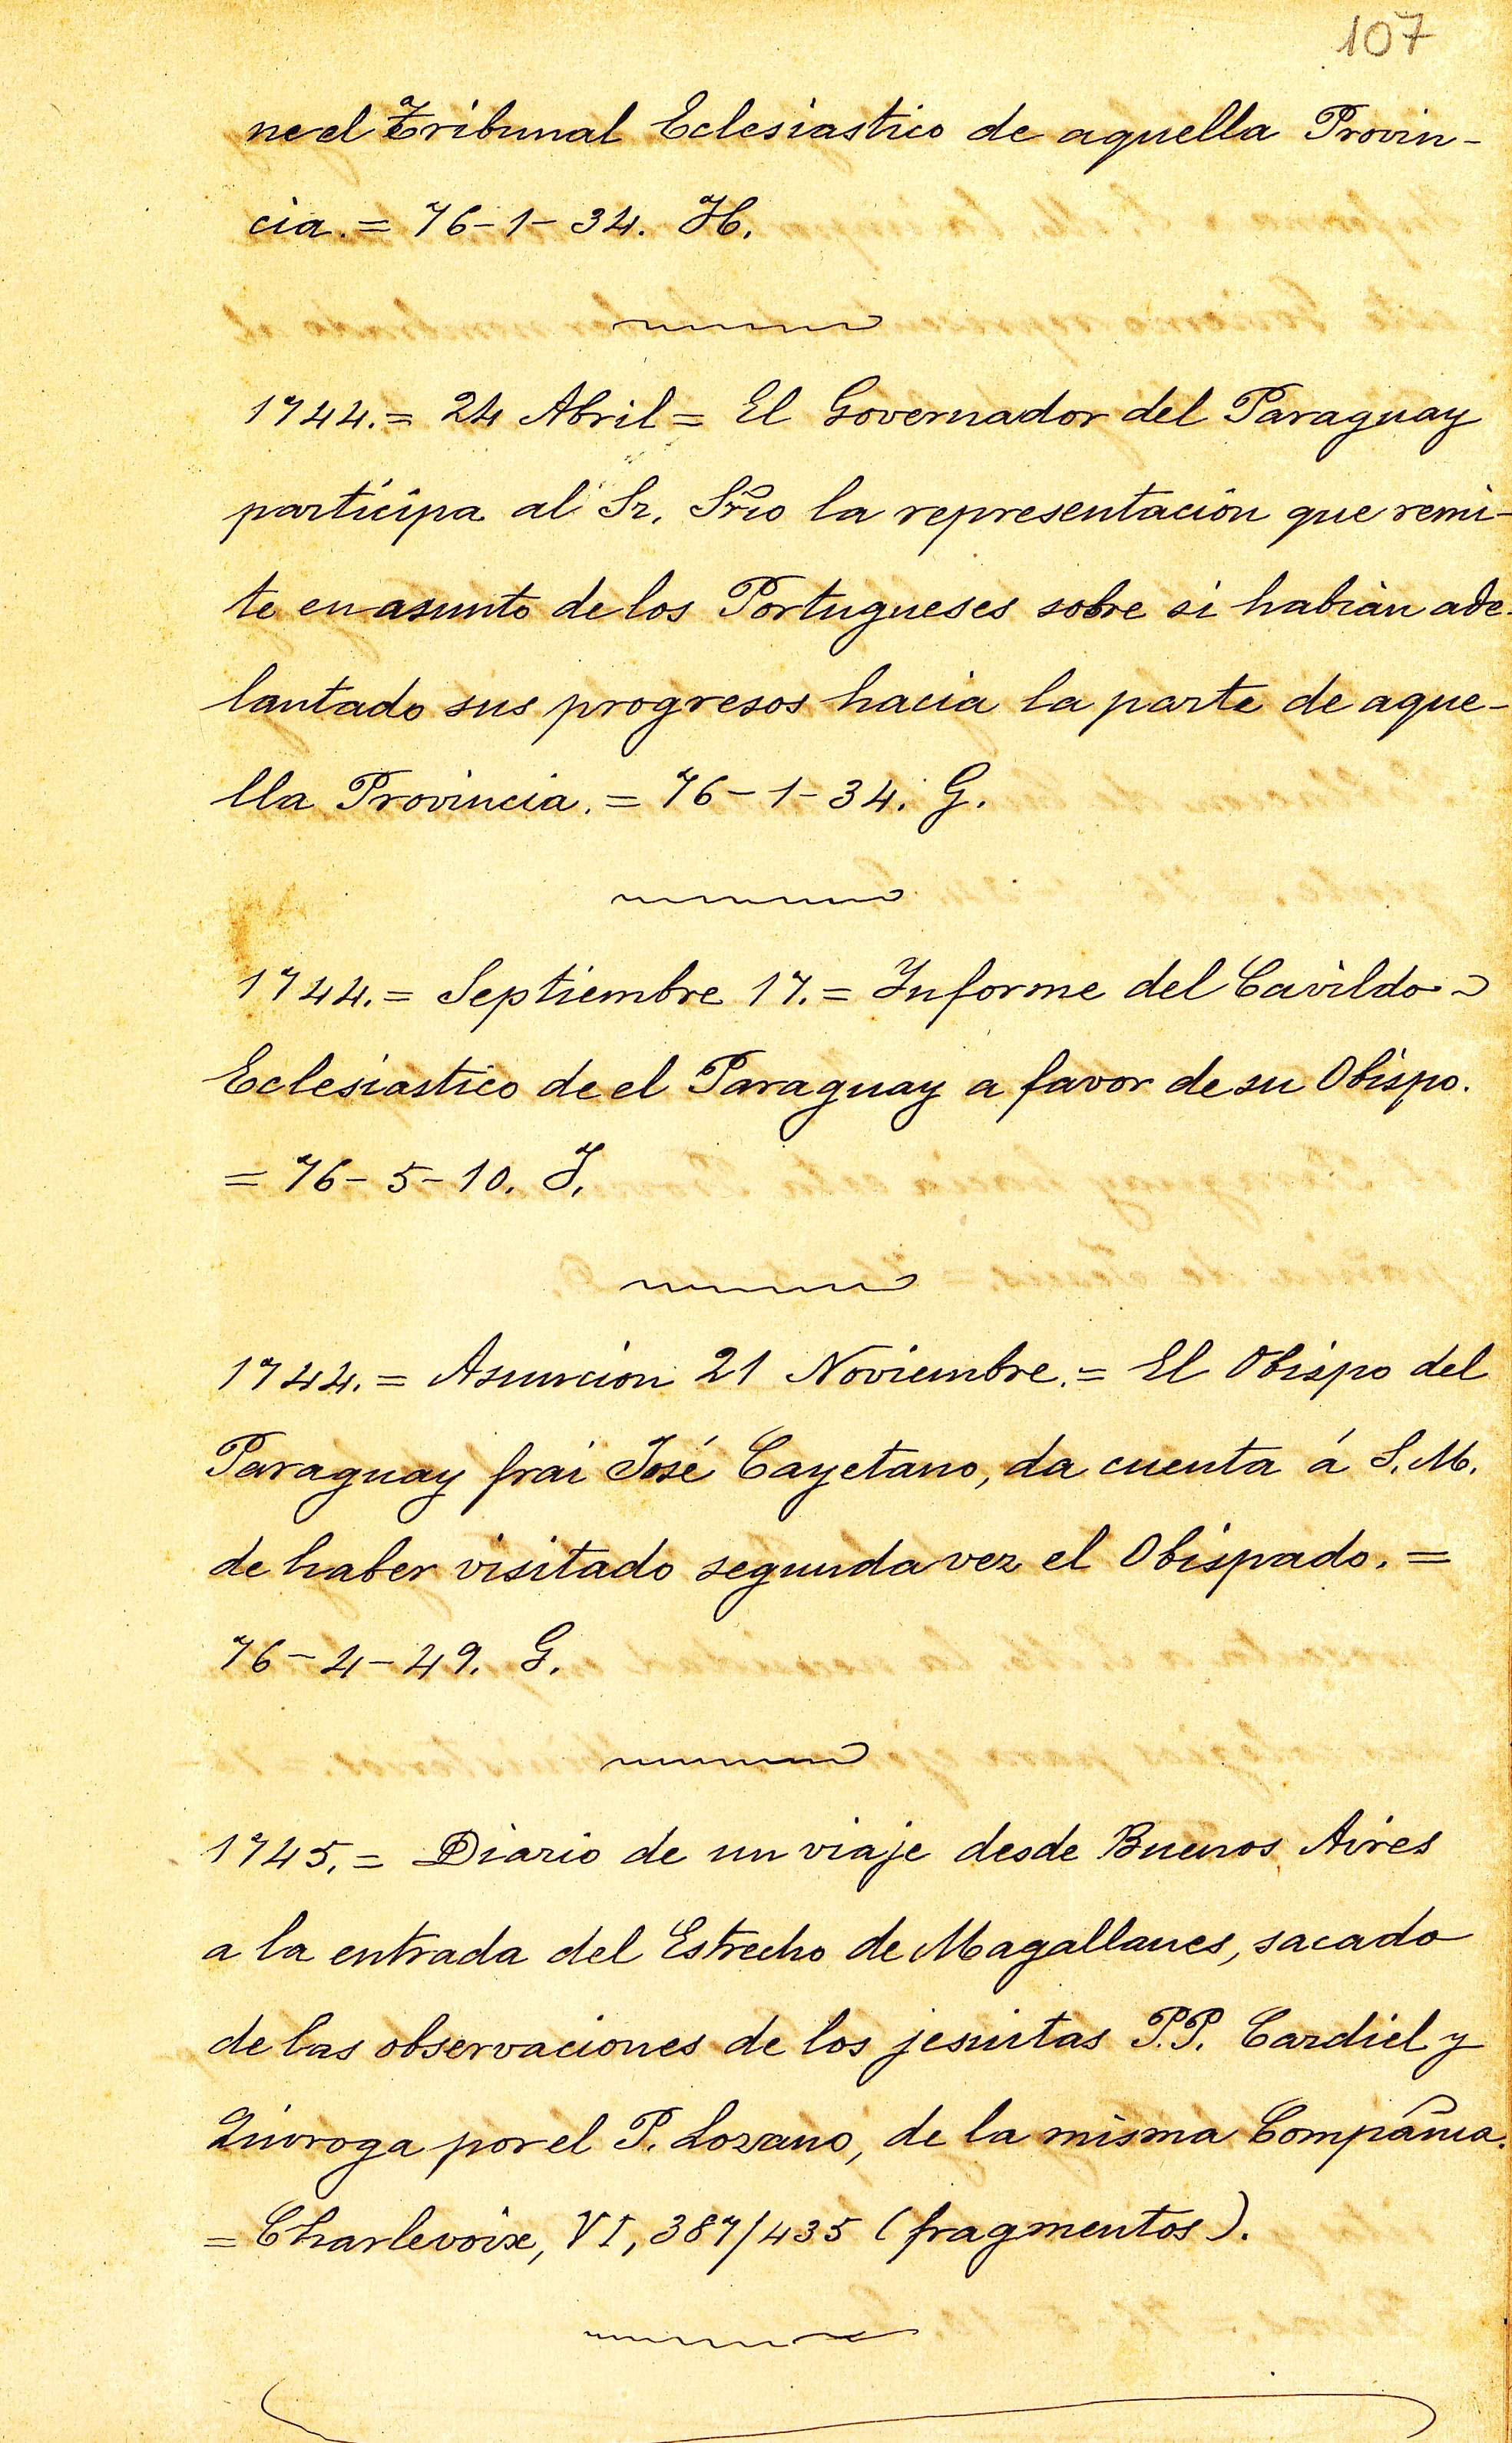 107
ne el Tribunal Eclesiastico de aquella Provin-
cia. = 76-1-34. H.
1744. = 24 Abril = El Governador del Paraguay
participa al Sr. Srio la representación que remi-
te en asunto de los Portugueses sobre si habian ade-
lantado sus progresos hacia la parte de aque-
lla Provincia. = 76-1-34. G.
1744. = Septiembre 17. = Informe del Cavildo
Eclesiastico de el Paraguay a favor de su Obispo.
= 76-5-10. I.
1744. = Asuncion 21 Noviembre. = El Obispo del
Paraguay frai José Cayetano, da cuenta á S. M.
de haber visitado segunda vez el Obispado. =
76-4-49. G.
1745. = Diario de un viaje desde Buenos Aires
a la entrada del Estrecho de Magallanes, sacado
de las observaciones de los jesuitas P.P. Cardiel y
Quiroga por el P. Lozano, de la misma Compañia.
= Charlevoix, VI, 387/435 (fragmentos).